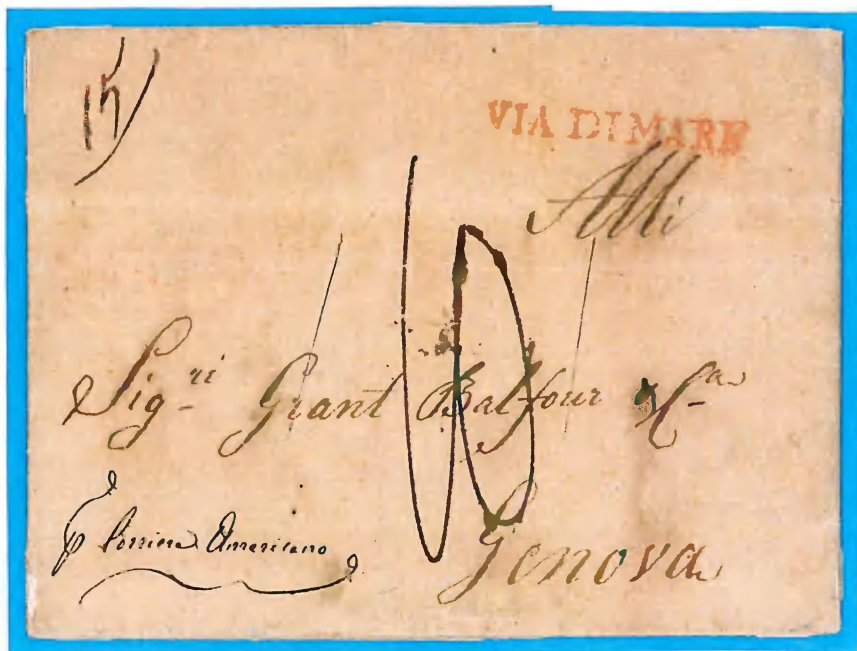 15
VIA DI MARE
Alli
Sig.ri Grant Balfour & Ca
10
p Corriere Americano
Genova